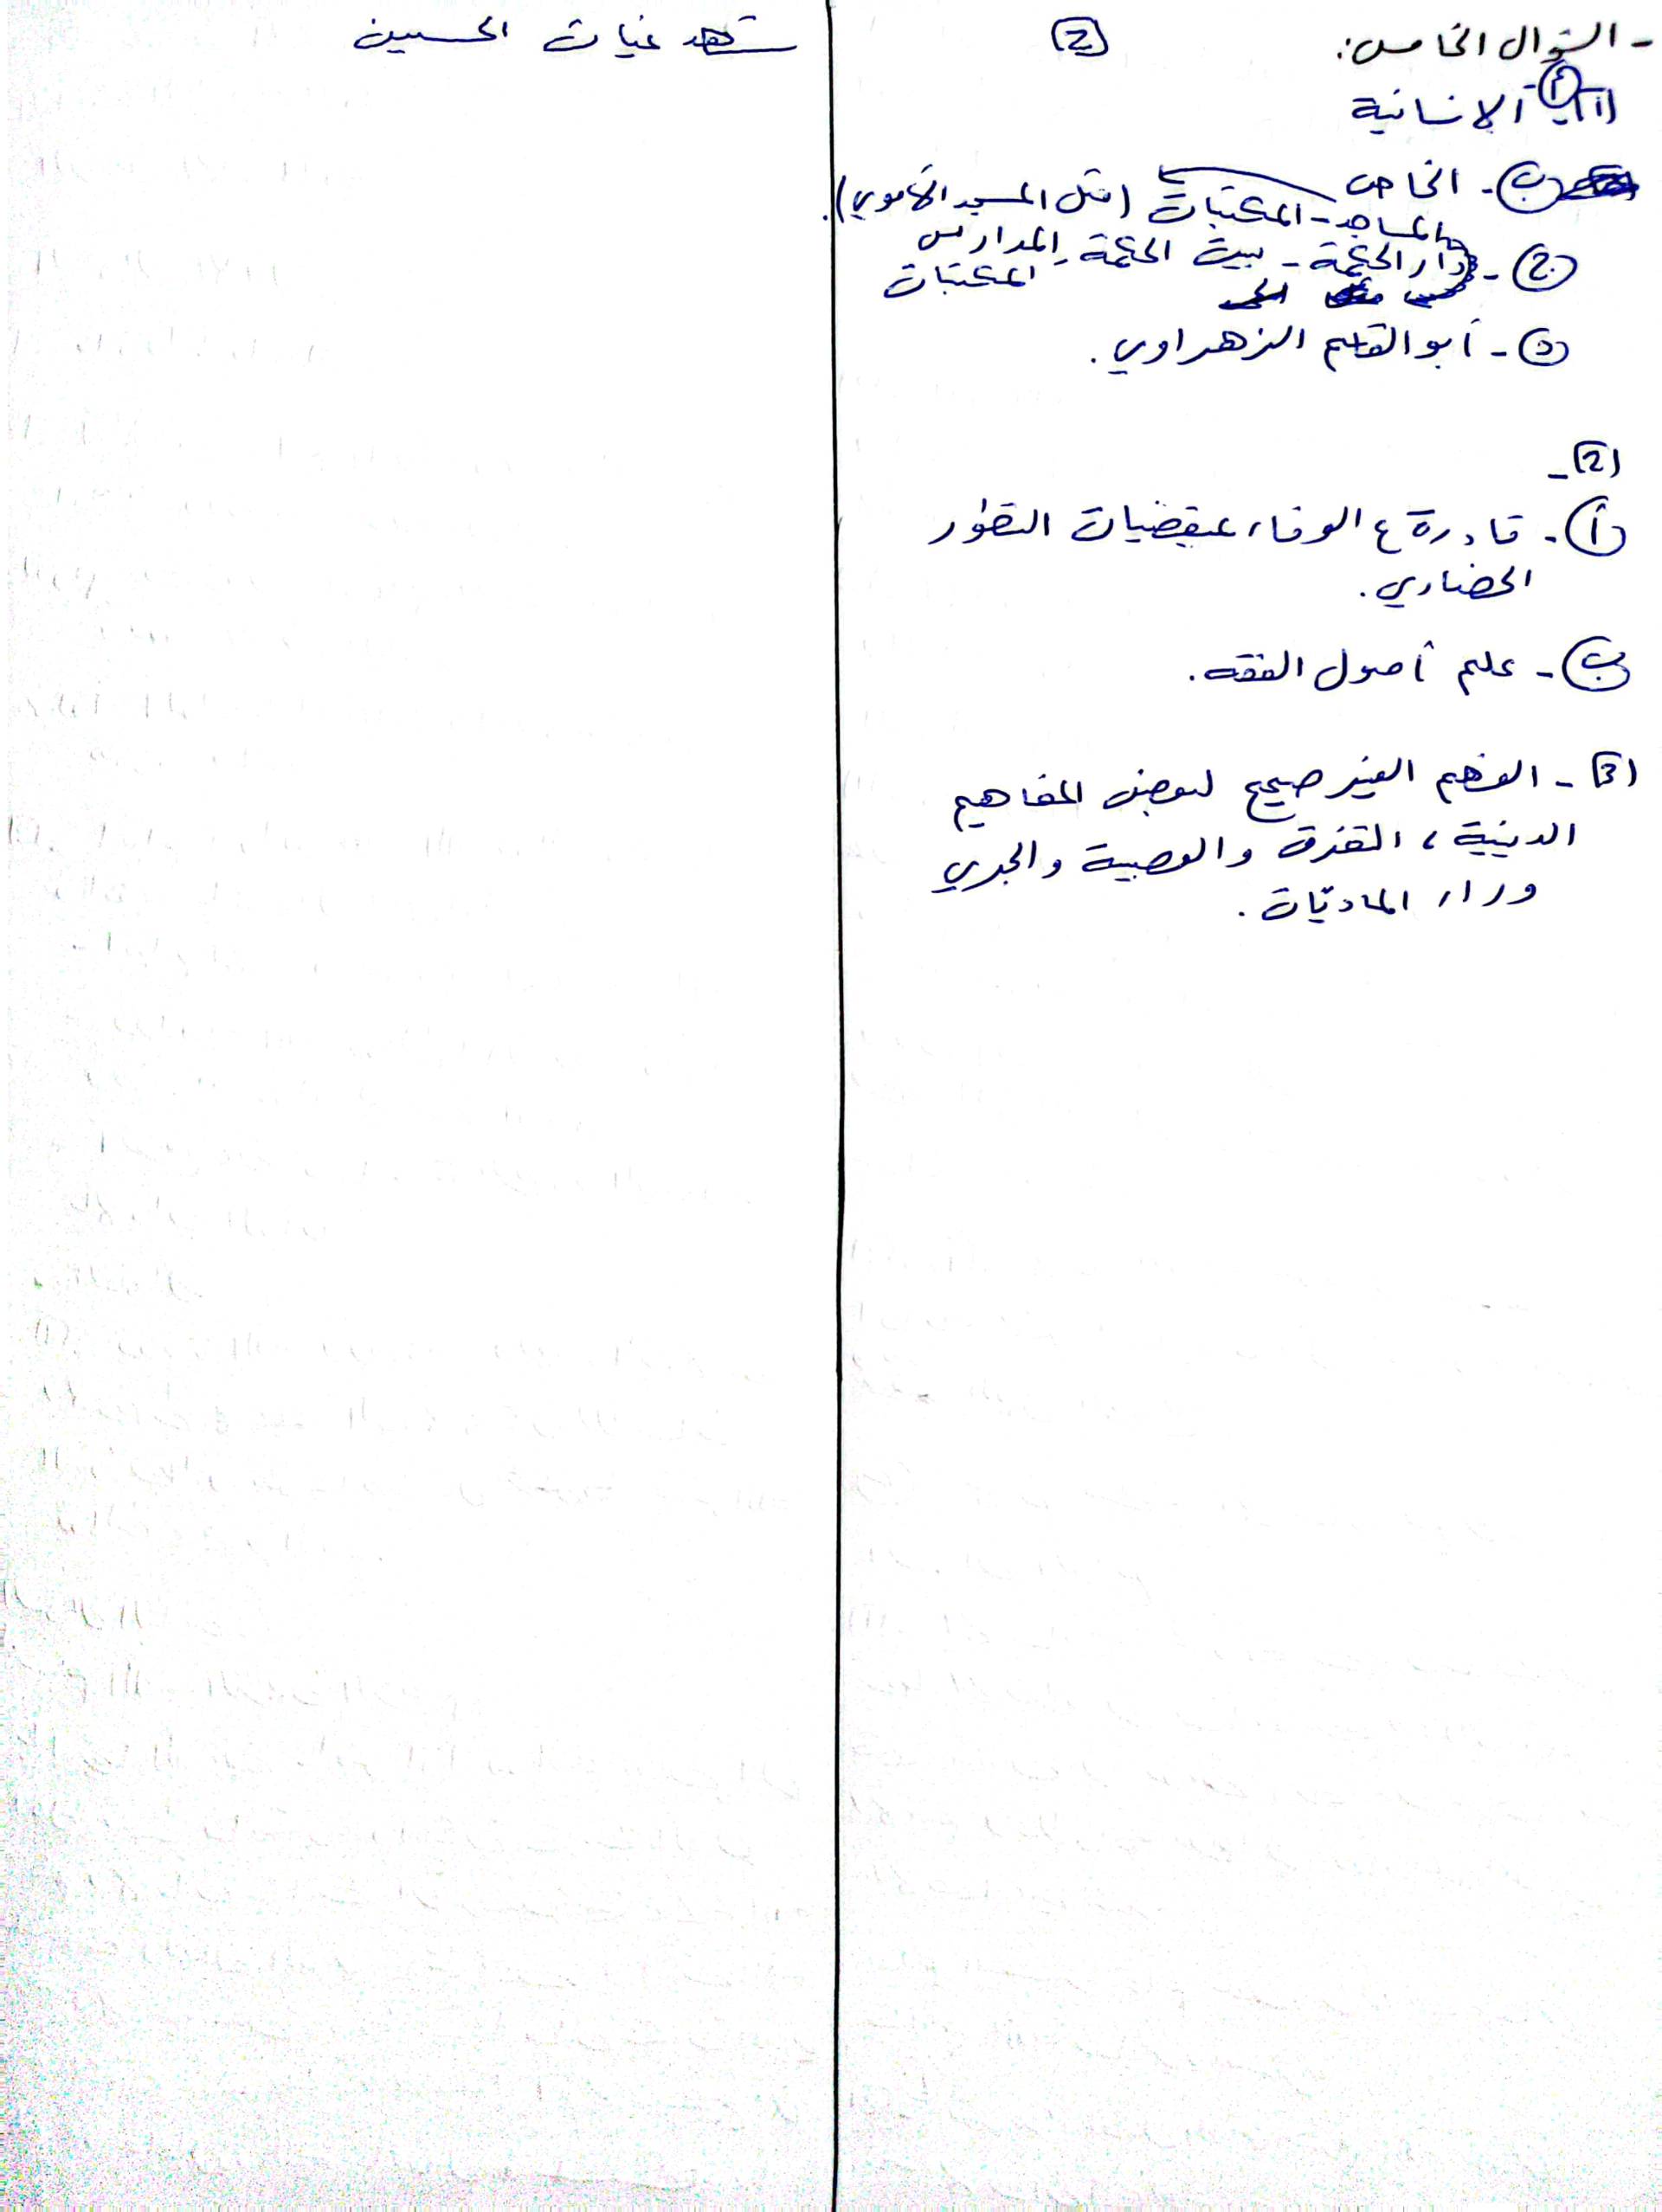 - السؤال الخامس: [2] شهد غياث الحسين
(1)- أ- الإنسانية
ب- الخاص
المساجد - المكتبات (مثل المسجد الأموي).
ج- دار الحكمة - بيت الحكمة - المدارس
المكتبات
د- أبو القاسم الزهراوي.
(2)-
أ- قادرة ع الوفاء بمقتضيات التطور
الحضاري.
ب- علم أصول الفقه.
(3)- الفهم الغير صحيح لبعض المفاهيم
الدينية، التفرق والعصبية والجري
وراء الماديّات.